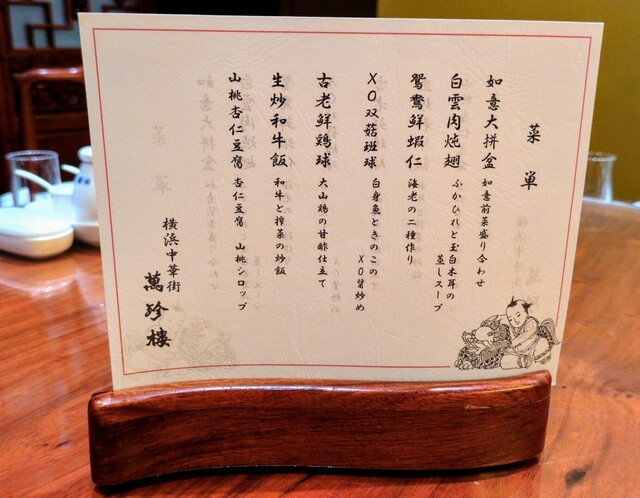 菜単
如意大拼盆 如意前菜盛り合わせ
白雲肉炖翅 ふかひれと玉白木耳の
蒸しスープ
鴛鴦鮮蝦仁 海老の二種作り
XO双菇班球 白身魚ときのこの
XO醤炒め
古老鮮鶏球 大山鶏の甘酢仕立て
生炒和牛飯 和牛と搾菜の炒飯
山桃杏仁豆腐 杏仁豆腐 山桃シロップ
横浜中華街
萬珍樓